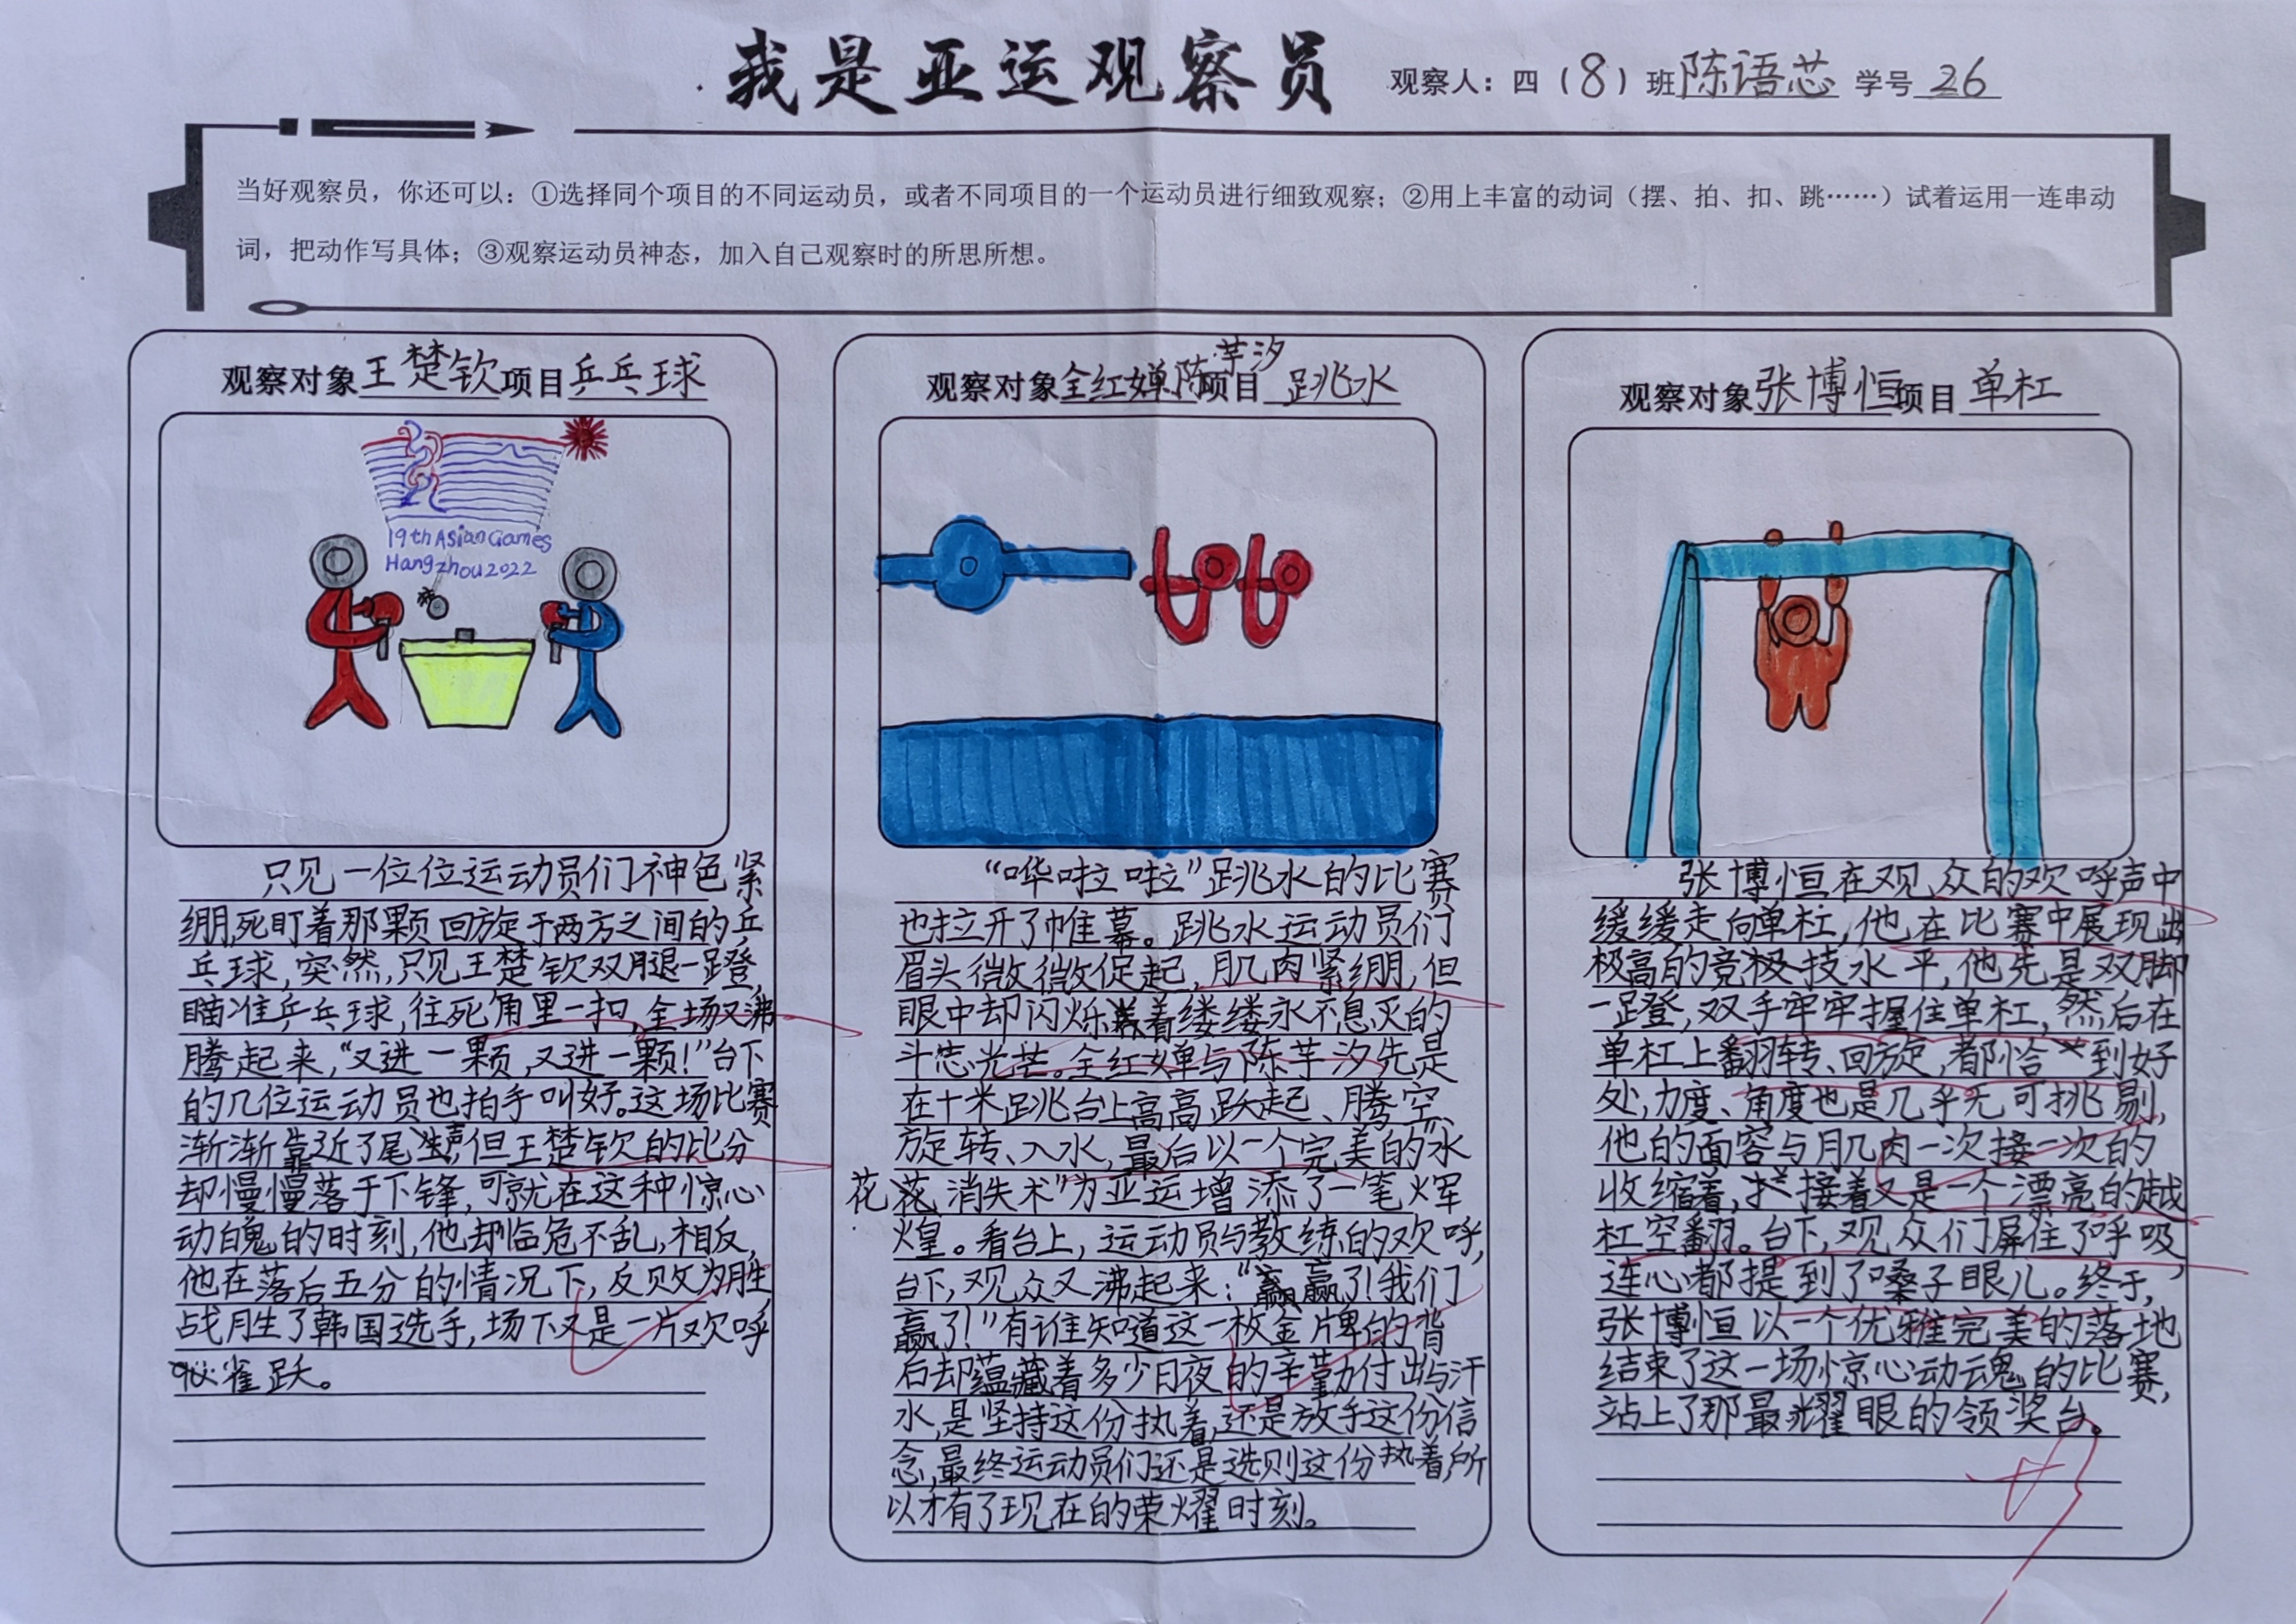 我是亚运观察员
观察人：四（8）班陈语芯 学号 26
当好观察员，你还可以：①选择同个项目的不同运动员，或者不同项目的一个运动员进行细致观察；②用上丰富的动词（摆、拍、扣、跳……）试着运用一连串动
词，把动作写具体；③观察运动员神态，加入自己观察时的所思所想。
观察对象王楚钦项目乒乓球
19th Asian Games
Hangzhou 2022
只见一位位运动员们神色紧
绷,死盯着那颗回旋于两方之间的乒
乓球，突然，只见王楚钦双腿一蹬，
瞄准乒乓球，往死角里一扣，全场又沸
腾起来，“又进一颗，又进一颗！”台下
的几位运动员也拍手叫好。这场比赛
渐渐靠近了尾声，但王楚钦的比分
却慢慢落于下锋，可就在这种惊心
动魄的时刻，他却临危不乱，相反，
他在落后五分的情况下，反败为胜，
战胜了韩国选手，场下又是一片欢呼
雀跃。
观察对象全红婵陈芋汐项目 跳水
“哗啦啦”跳水的比赛
也拉开了帷幕。跳水运动员们
眉头微微促起，肌肉紧绷，但
眼中却闪烁着缕缕永不息灭的
斗志光芒。全红婵与陈芋汐先是
在十米跳台上高高跃起、腾空、
旋转、入水，最后以一个完美的水
花 消失术”为亚运增添了一笔辉
煌。看台上，运动员与教练的欢呼，
台下，观众又沸起来：“赢赢了！我们
赢了！”有谁知道这一枚金牌的背
后却蕴藏着多少日夜的辛勤付出与汗
水，是坚持这份执着，还是放手这份信
念，最终运动员们还是选则这份执着，所
以才有了现在的荣耀时刻。
观察对象张博恒项目 单杠
张博恒在观众的欢呼声中
缓缓走向单杠，他在比赛中展现出
极高的竞技水平，他先是双脚
一蹬，双手牢牢握住单杠，然后在
单杠上翻转、回旋，都恰到好
处，力度、角度也是几乎无可挑剔，
他的面容与肌肉一次接一次的
收缩着，接着又是一个漂亮的越
杠空翻。台下，观众们屏住了呼吸，
连心都提到了嗓子眼儿。终于，
张博恒以一个优雅完美的落地
结束了这一场惊心动魂的比赛，
站上了那最耀眼的领奖台。